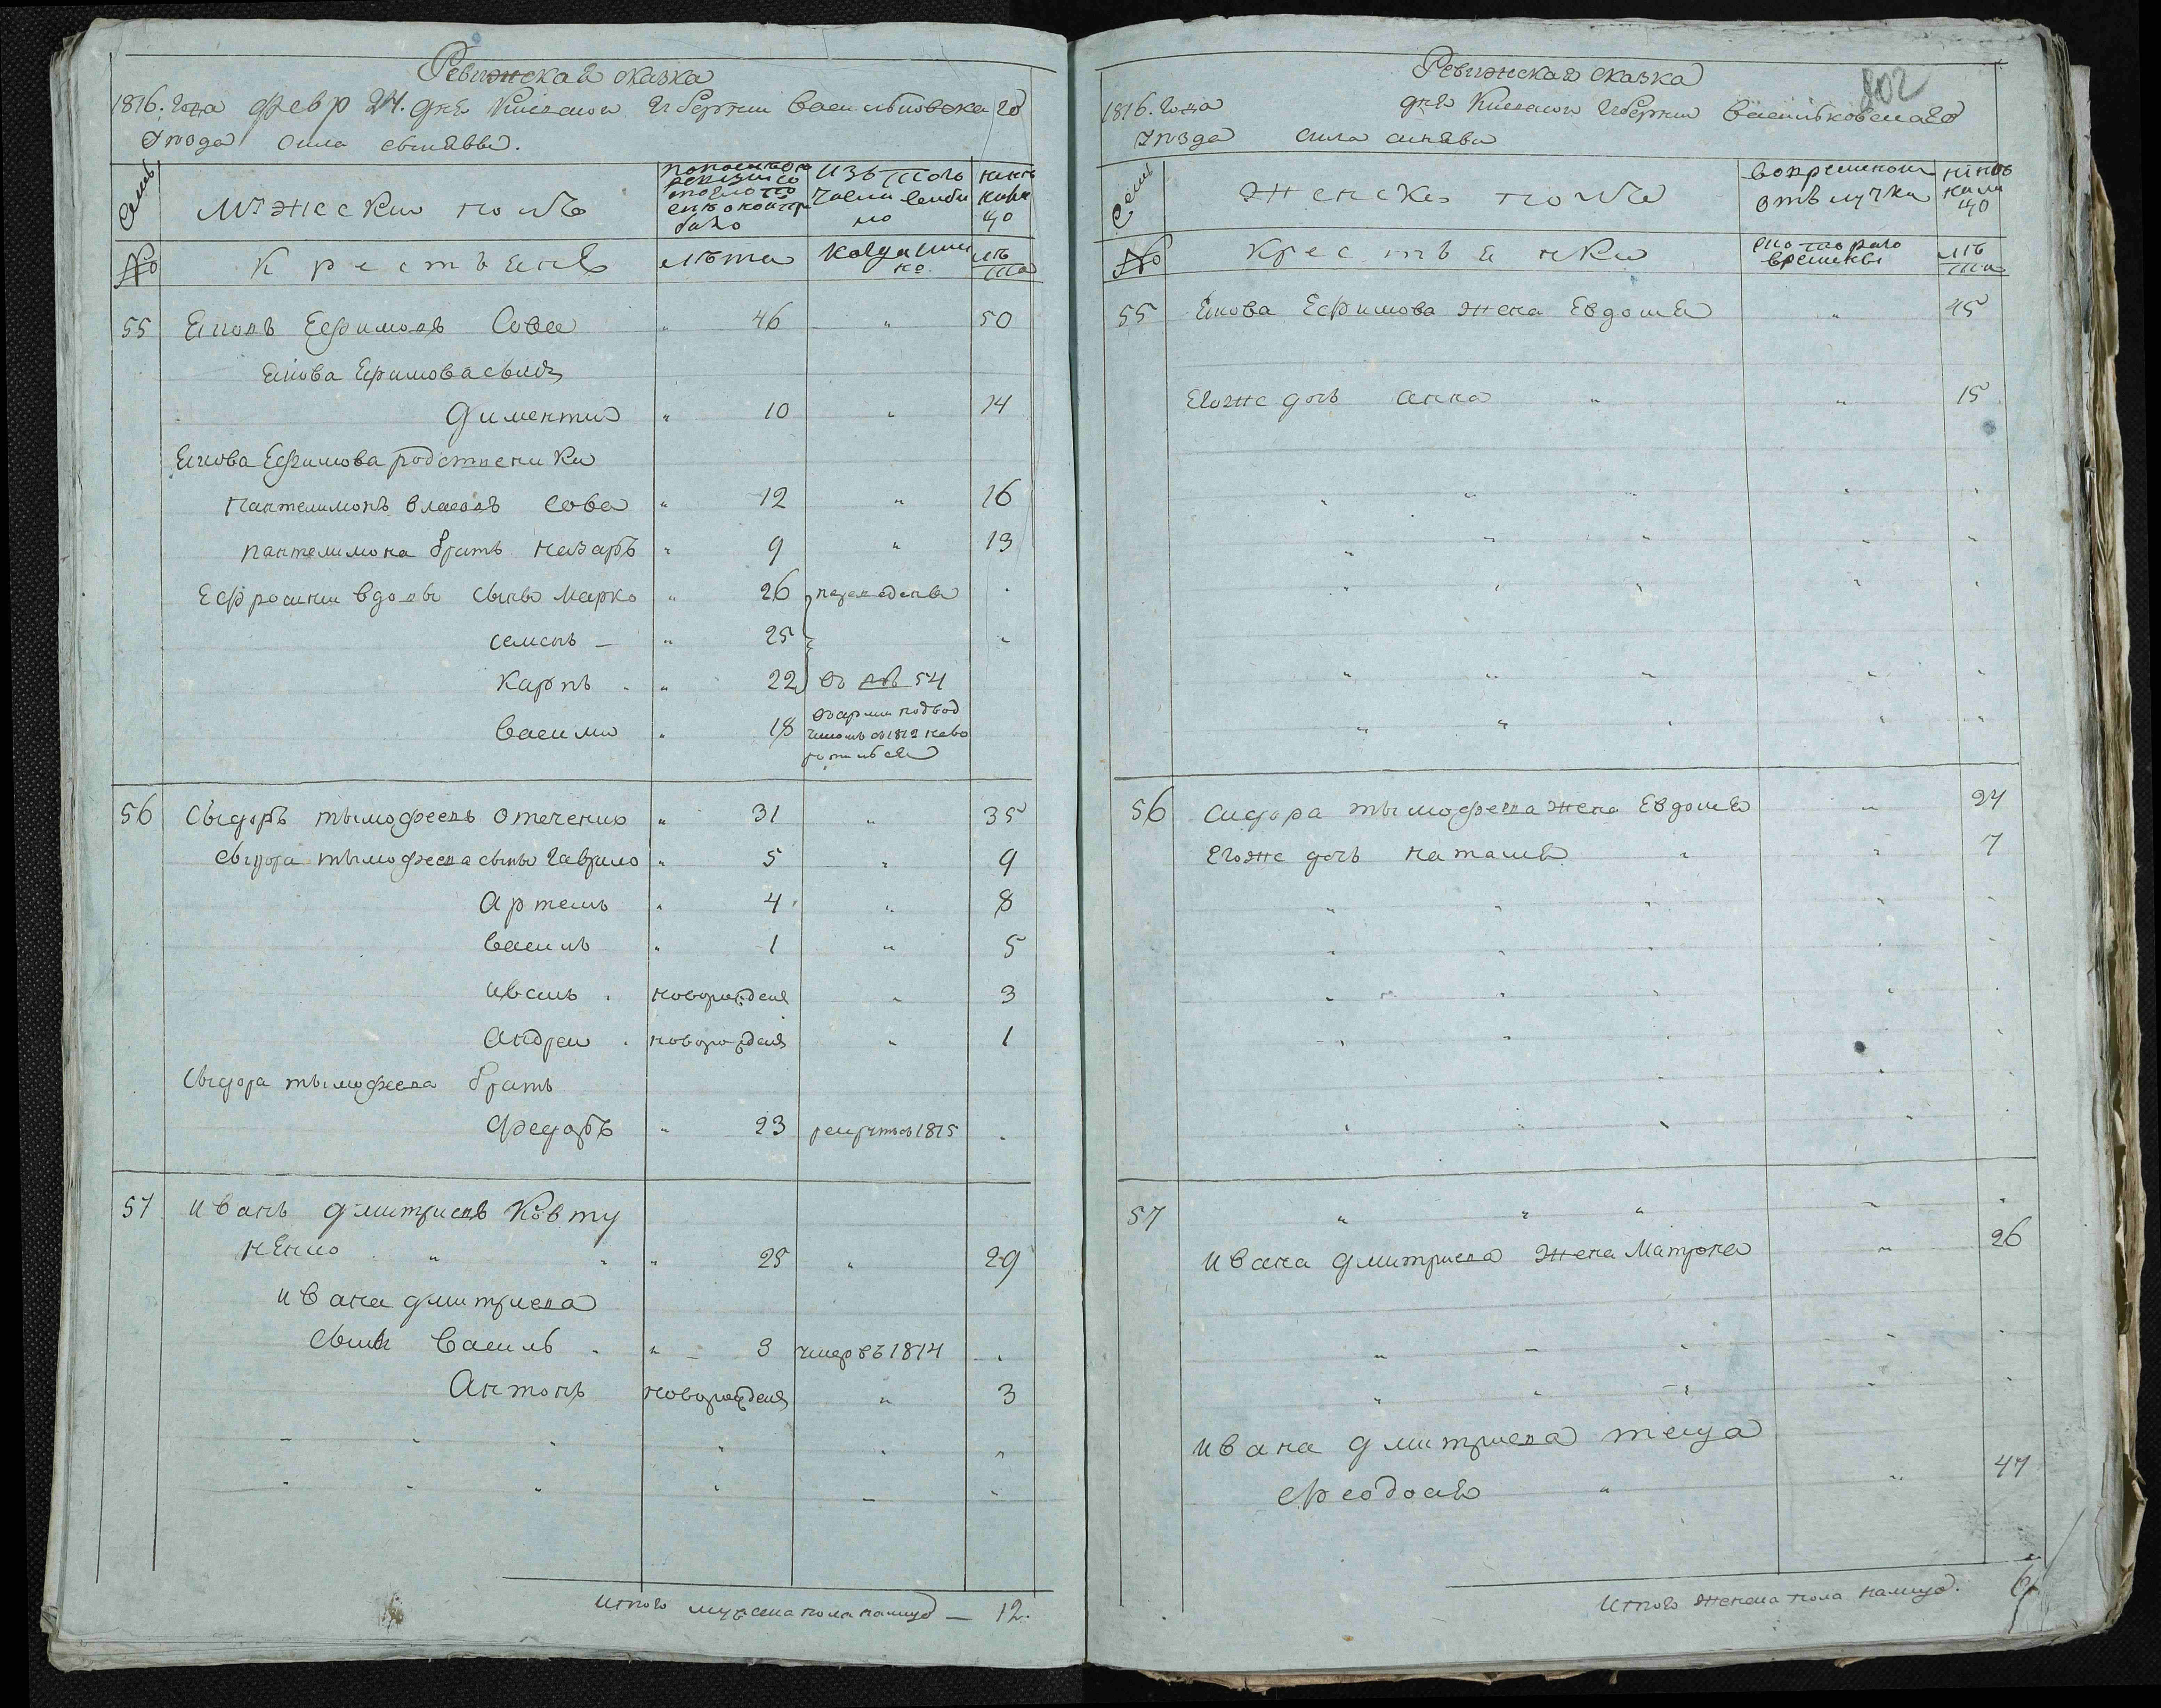 Ревизская сказка
1816. года февр 24. дня Киевской Губернии Васильковскаго
Уезда Села Сынявы.
Семьи
Мужеской полъ
По последней ревизии состояло
Изъ того числа выбыло
Ныне на лицо
№
Крестьяне
лета
Когда именно
лета
55 Яковъ Ефимовъ Сова " 46 " 50
Якова Ефимова сынъ
Дименти " 10 " 14
Якова Ефимова родственики
Пантелимонъ Власовъ Сова " 12 " 16
Пантелимона братъ Назаръ " 9 " 13
Ефросинии вдовы сыны Марко " 26 переведены
Семенъ – " 25
Карпъ " 22 в № 54
Василь " 18 в 1812
56 Сыдоръ Тымофеевъ Отеченко " 31 " 35
Сыдора Тымофеева сыны Гаврило " 5 " 9
Артемъ " 4 " 8
Василь " 1 " 5
Иванъ новорожденъ " 3
Андреи новорожденъ " 1
Сыдора Тымофеева братъ
Федоръ " 23 рекрутъ въ 1815
57 Иванъ Дмитриевъ Ковту
ненко " " " 25 " 29
Ивана Дмитриева
сыны Василь " 3 умер въ 1814
Антонъ новорожденъ " 3
Итого мужеска пола налицо – 12.
Ревизская сказка
802
1816. года дня Киевской Губернии Васильковскаго
Уезда Села Синявы
Семьи
Женской полъ
Во временной отлучке
Ныне на лицо
№
Крестьянки
Съ котораго времены
лета
55 Якова Ефимова жена Евдокия " 45
Егоже дочь Анна " " 15
56 Сидора Тымофеева жена Евдокия " 24
Егоже дочь Наталия " " 7
57
Ивана Дмитриева жена Матрона " 26
Ивана Дмитриева теща
Феодосия " " 47
Итого женска пола налицо. 6